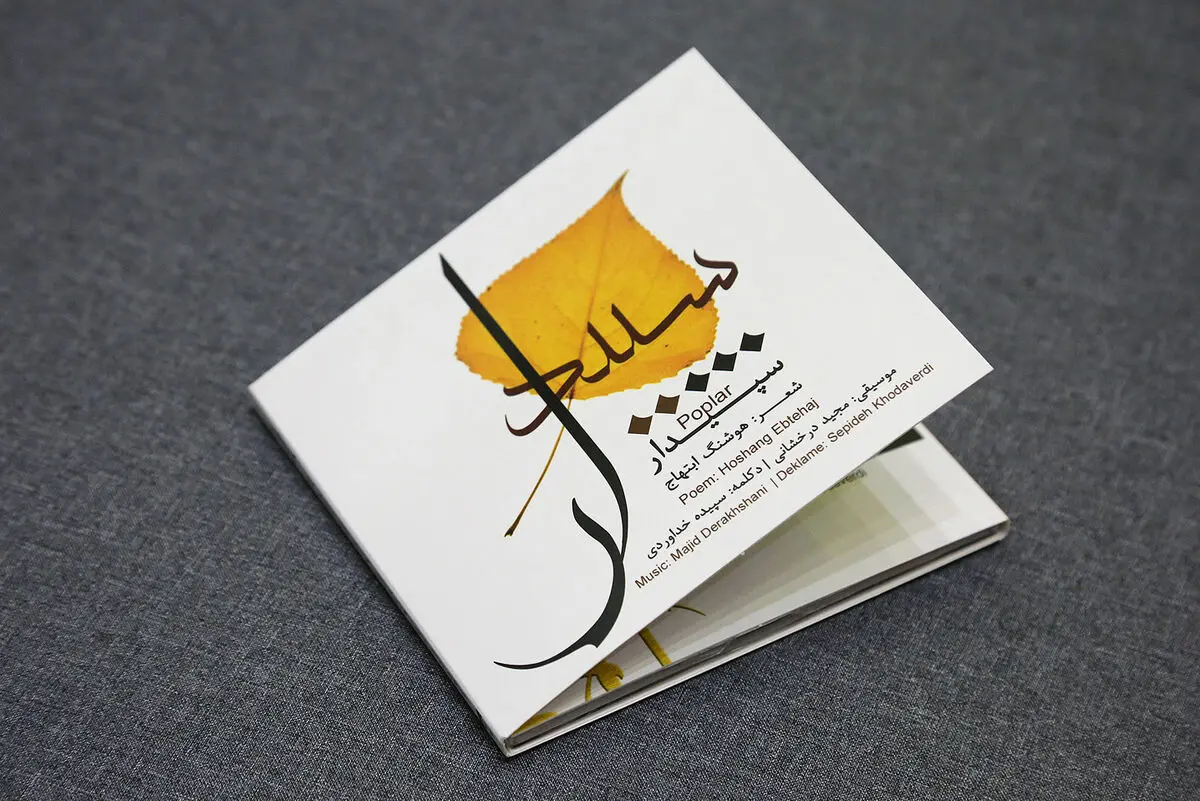 سپیدار
Poplar
سپیدار
شعر: هوشنگ ابتهاج
Poem: Hoshang Ebtehaj
موسیقی: مجید درخشانی | دکلمه: سپیده خداوردی
Music: Majid Derakhshani | Deklame: Sepideh Khodaverdi